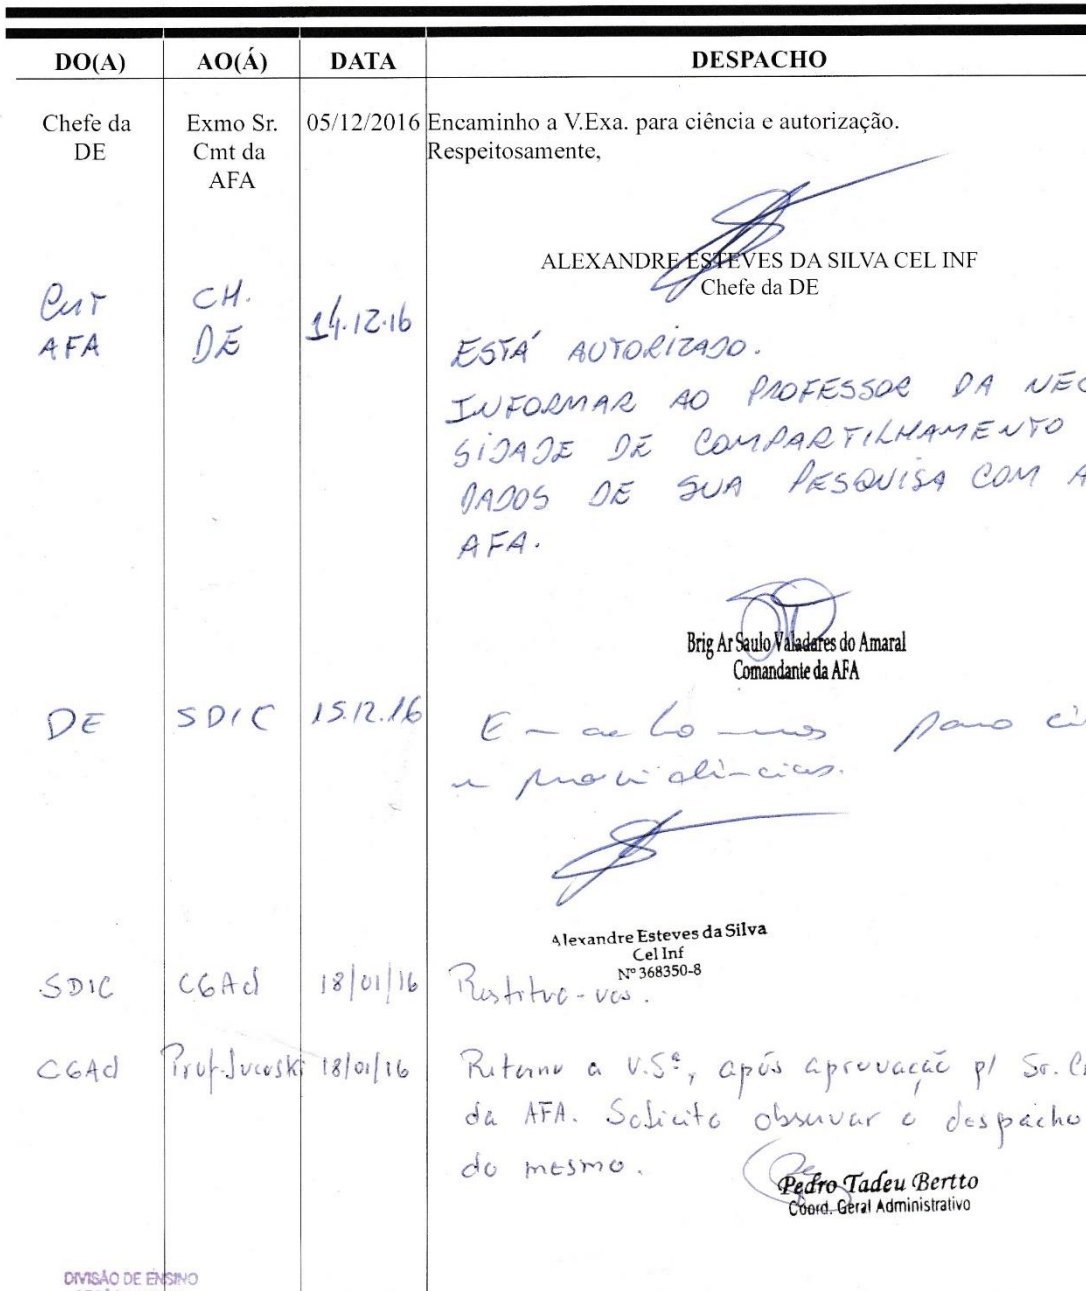 DO(A) AO(Á) DATA DESPACHO
Chefe da Exmo Sr. 05/12/2016 Encaminho a V.Exa. para ciência e autorização.
DE Cmt da Respeitosamente,
AFA
ALEXANDRE ESTEVES DA SILVA CEL INF
Chefe da DE
CMT CH. 14.12.16
AFA DE
ESTÁ AUTORIZADO.
INFORMAR AO PROFESSOR DA NEC
SIDADE DE COMPARTILHAMENTO
DADOS DE SUA PESQUISA COM A
AFA.
Brig Ar Saulo Valadares do Amaral
Comandante da AFA
DE SDIC 15.12.16 para ci
providências.
Alexandre Esteves da Silva
Cel Inf
Nº 368350-8
SDIC CGAd 18/01/16 Restituo-vos.
CGAd Prof. Jucoski 18/01/16 Retorno a V.Sª, após aprovação p/ Sr. C
da AFA. Solicito observar o despacho
do mesmo.
Pedro Tadeu Bertto
Coord. Geral Administrativo
DIVISÃO DE ENSINO